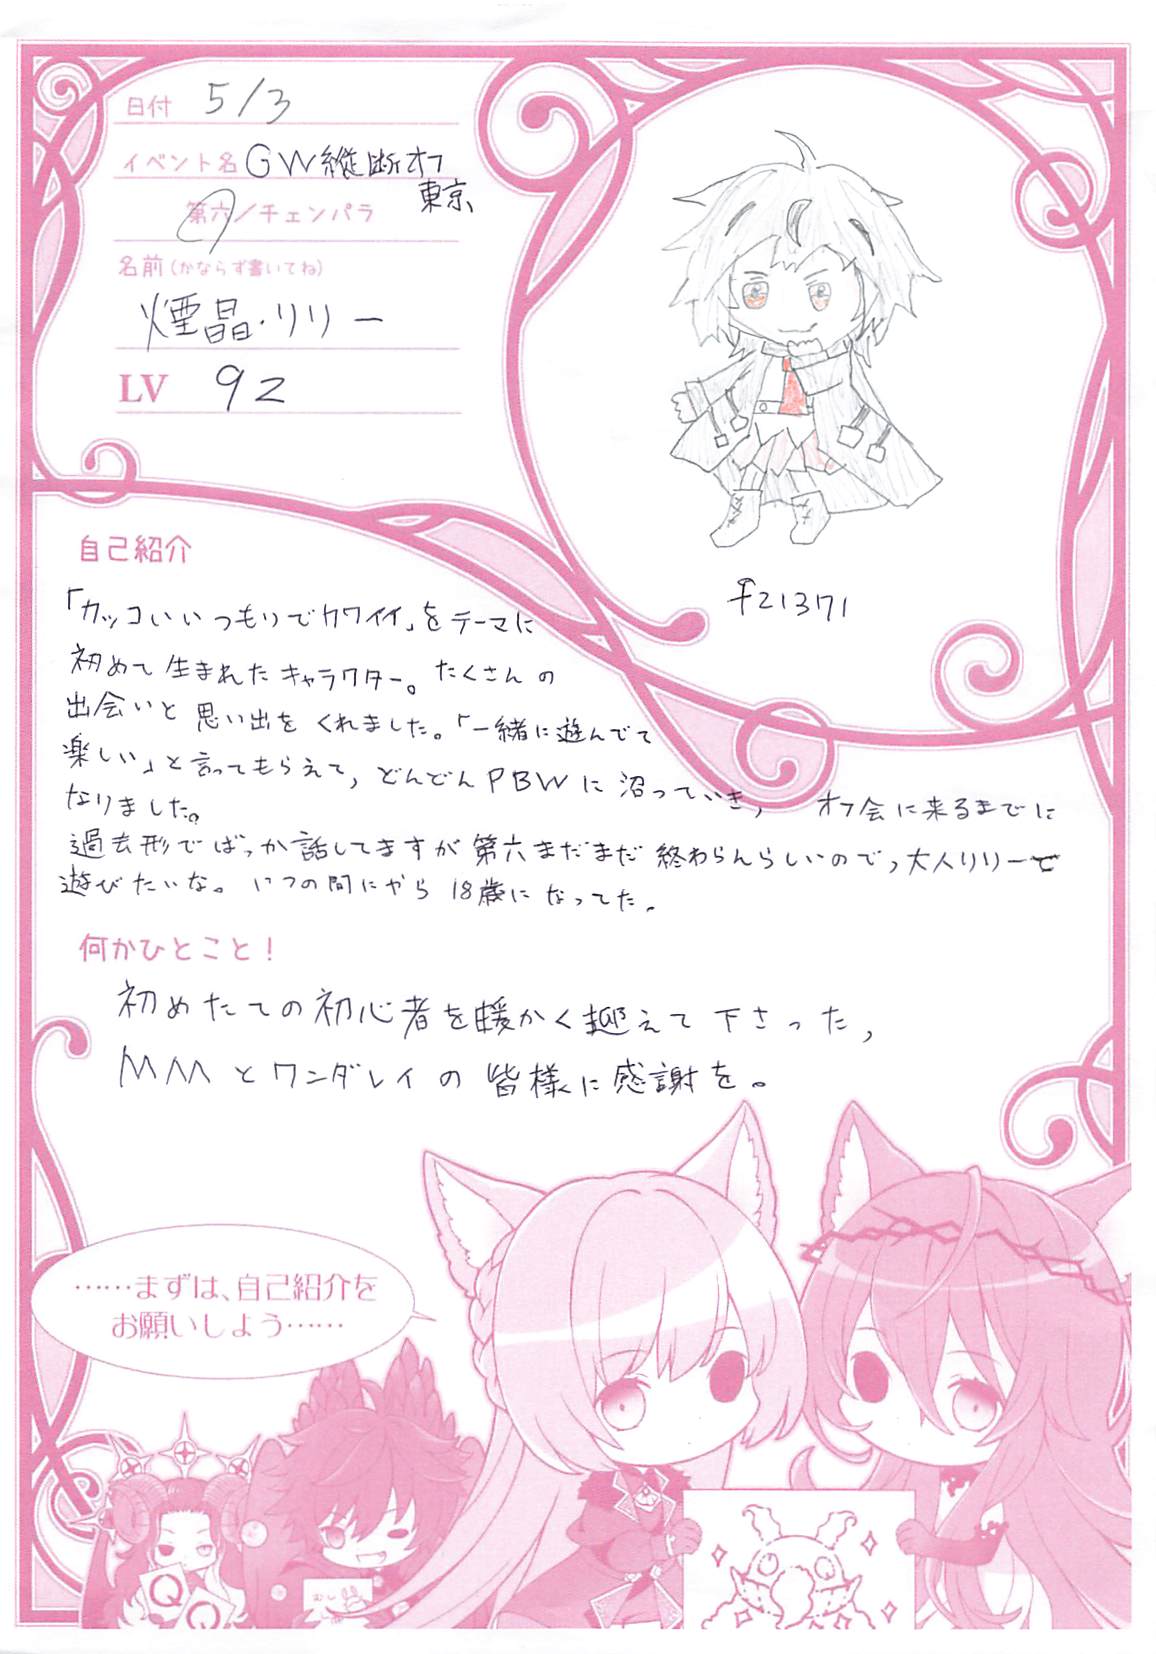 日付 5/3
イベント名 GW縦断オフ
東京
第六/チェンパラ
名前(かならず書いてね)
煙晶・リリー
LV 92
f21371
自己紹介
「カッコいいつもりでカワイイ」をテーマに
初めて生まれたキャラクター。たくさんの
出会いと思い出をくれました。「一緒に遊んでて
楽しい」と言ってもらえて、どんどんPBWに沼っていき、オフ会に来るまでに
なりました。
過去形でばっか話してますが第六まだまだ終わらんらしいので、大人リリーで
遊びたいな。いつの間にやら18歳になってた。
何かひとこと!
初めたての初心者を暖かく迎えて下さった、
MMとワンダレイの皆様に感謝を。
……まずは、自己紹介を
お願いしよう……
Q
Q